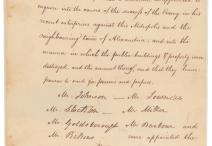 inquire into the causes of the success of the enemy in his
recent enterprises against this Metropolis and the
neighbouring town of Alexandria, and into the
manner in which the public buildings & property were
destroyed, and the amount thereof, and that they have
power to send for persons and papers.
Mr. Johnson — Mr. Lowndes
Mr. Stockton — Mr. Miller
Mr. Goldsborough Mr. Barbour and
Mr. Pickens were appointed the